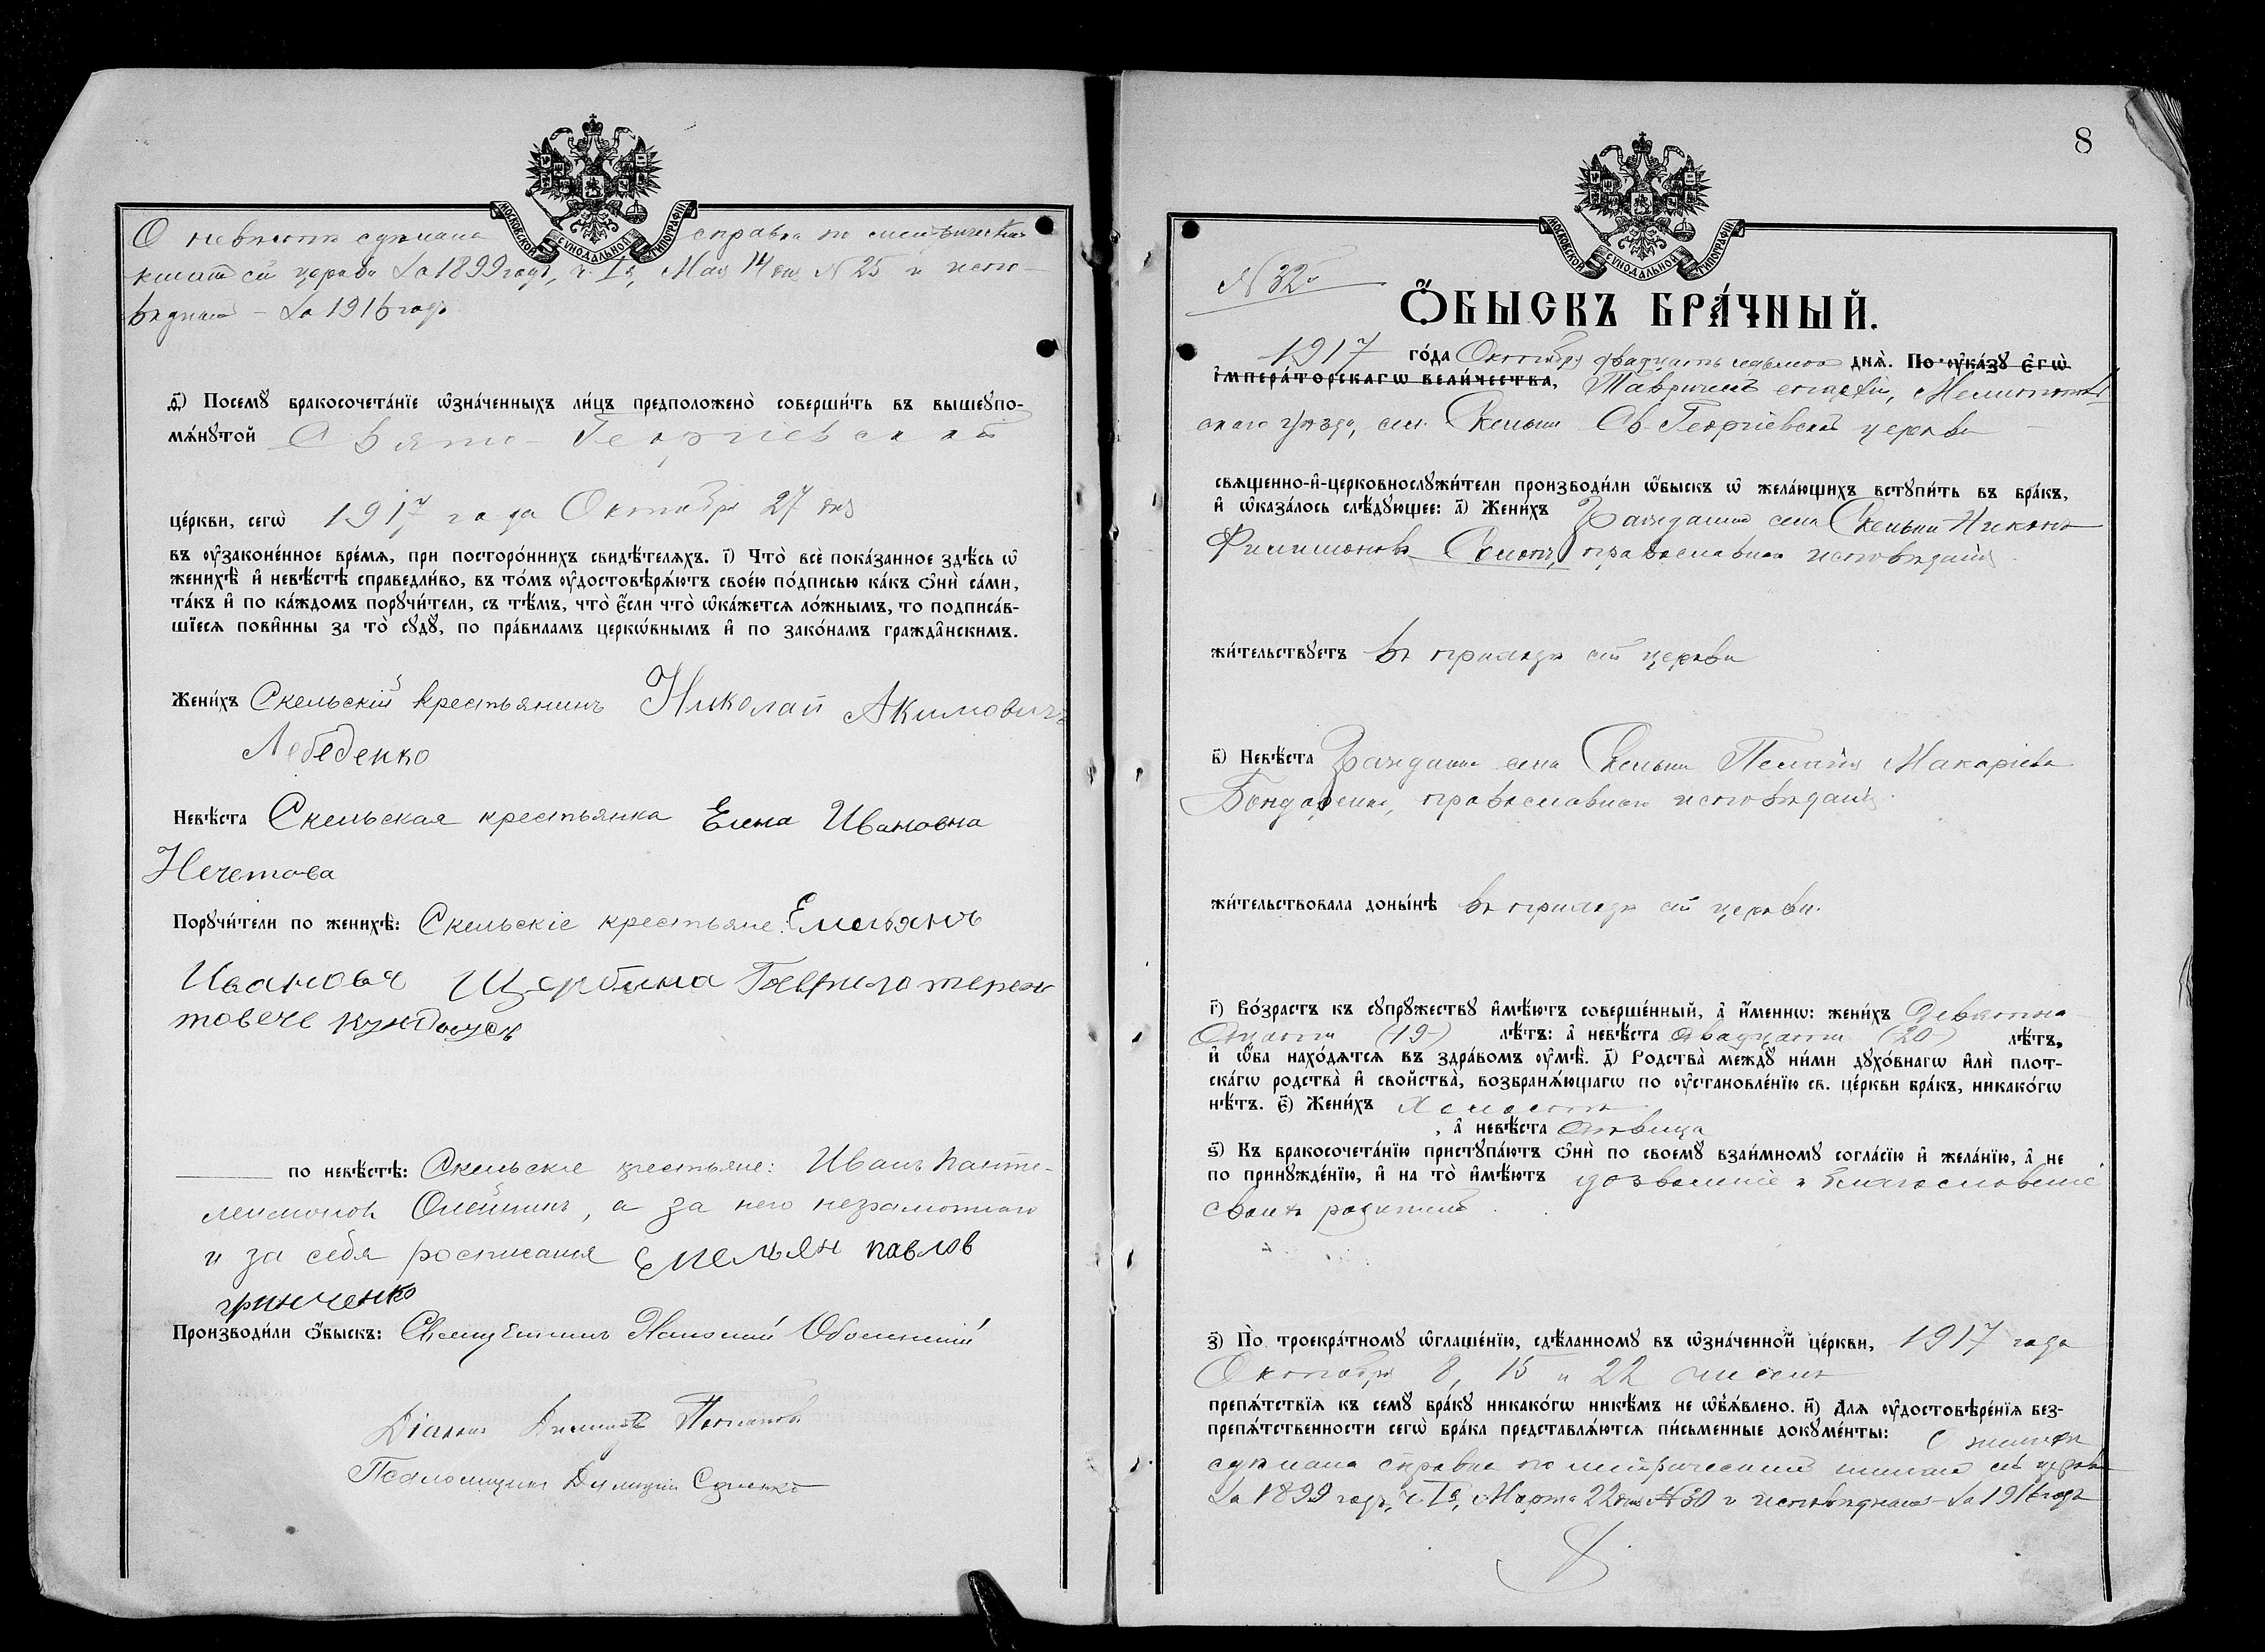 МОСКОВСКОЙ СѴНОДАЛЬНОЙ ТИПОГРАФІИ
О невѣстѣ сдѣлана справка по метрической
книгѣ сей церкви за 1899 годъ, ч. Iя, Мая 14 дня № 25 и испо-
вѣдной – за 1916 годъ
ѳ҃) Посемꙋ бракосочета́нїе ѡ҆зна́ченныхъ ли́цъ предположено̀ соверши́ть въ вышеꙋпо-
мѧ́нꙋтой Свято-Георгіевской
це́ркви, сегѡ̀ 1917 года Октября 27 дня
въ ᲂу҆зако́ненное вре́мѧ, при посторо́ннихъ свидѣ́телѧхъ. і҃) Что̀ всѐ пока́занное здѣ́сь ѡ҆
женихѣ̀ и҆ невѣ́стѣ справедли́во, въ то́мъ ᲂу҆достовѣрѧ́ютъ свое́ю по́дписью ка́къ ѻ҆нѝ са́ми,
та́къ и҆ по ка́ждомъ порꙋчи́тели, съ тѣ́мъ, что̀ є҆́сли что̀ ѡ҆ка́жетсѧ ло́жнымъ, то подписа́в-
шїесѧ пови́нны за то̀ сꙋдꙋ̀, по пра́виламъ церкѡ́внымъ и҆ по зако́намъ гражда̑нскимъ.
Жени́хъ Скельскій крестьянинъ Николай Акимовичъ
Лебеденко
Невѣ́ста Скельская крестьянка Елена Ивановна
Нечетова
Порꙋчи́тели по женихѣ̀: Скельскіе крестьяне: Емельянъ
Ивановъ Щербина Гаврило терен
товече
по невѣ́стѣ: Скельскіе крестьяне: Иванъ Панте-
леимоновъ Олейникъ, а за него неграмотнаго
и за себя росписался Емельян павлов
гринченко
Производи́ли ѻ҆́быскъ: Священникъ
Діаконъ
Псаломщикъ Димитрій
8
МОСКОВСКОЙ СѴНОДАЛЬНОЙ ТИПОГРАФІИ
№ 32
Ѻ҆́БЫСКЪ БРА́ЧНЫЙ.
1917 го́да Октября двадцать седьмого днѧ̀. По ᲂу҆ка́зꙋ є҆гѡ̀
і҆мпера́торскагѡ вели́чества, Таврической епархіи, Мелитополь
скаго уѣзда, села Скельки Св. Георгіевской церкви
свѧщенно-и҆-церковнослꙋжи́тели производи́ли ѻ҆́быскъ ѡ҆ жела́ющихъ встꙋпи́ть въ бра́къ,
и҆ ѡ҆каза́лось слѣ́дꙋющее: а҃) Жени́хъ Гражданинъ села Скельки Никонъ
Филимоновъ православнаго исповѣданія
жи́тельствꙋетъ въ приходѣ сей церкви
в҃) Невѣ́ста Гражданка села Скельки Пелагія Макаріева
Бондаренко, православнаго исповѣданія.
жи́тельствовала доны́нѣ въ приходѣ сей церкви.
г҃) Во́зрастъ къ сꙋпрꙋ́жествꙋ и҆мѣ́ютъ соверше́нный, а҆ и҆́менно: жени́хъ девятна-
дцати (19) лѣ́тъ: а҆ невѣ́ста двадцати (20) лѣ́тъ,
и҆ ѻ҆́ба нахо́дѧтсѧ въ здра́вомъ ᲂу҆мѣ̀. д҃) Родства̀ междꙋ̀ ни́ми дꙋхо́внагѡ и҆лѝ плот-
ска́гѡ родства̀ и҆ свойства̀, возбранѧ́ющагѡ по ᲂу҆становле́нїю св. це́ркви бра́къ, никако́гѡ
нѣ́тъ. є҃) Жени́хъ холостъ
, а҆ невѣ́ста дѣвица
ѕ҃) Къ бракосочета́нїю пристꙋпа́ютъ ѻ҆нѝ по своемꙋ̀ взаи́мномꙋ согла́сїю и҆ жела́нїю, а҆ не
по принꙋжде́нїю, и҆ на то̀ и҆мѣ́ютъ дозволеніе и благословеніе
своихъ родителей.
з҃) По̀ троекра́тномꙋ ѡ҆глаше́нїю, сдѣ́ланномꙋ въ ѡ҆зна́ченной це́ркви, 1917 года
Октября 8, 15 и 22 чиселъ
препѧ́тствїѧ къ семꙋ̀ бра́кꙋ никако́гѡ никѣ́мъ не ѡ҆б̾ѧ́влено. и҃) Длѧ ᲂу҆достовѣре́нїѧ без-
препѧ́тственности сегѡ̀ бра́ка представлѧ́ютсѧ пи́сьменные докꙋме́нты: О женихѣ
сдѣлана справка по метрической книгѣ сей церкви
за 1899 годъ, ч. Iя, Марта 22 дня № 30 и исповѣдной – за 1916 годъ